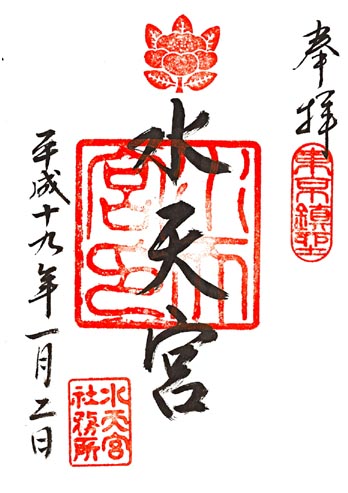 奉拝
東京鎮座
水天宮
平成十九年一月二日
水天宮
社務所